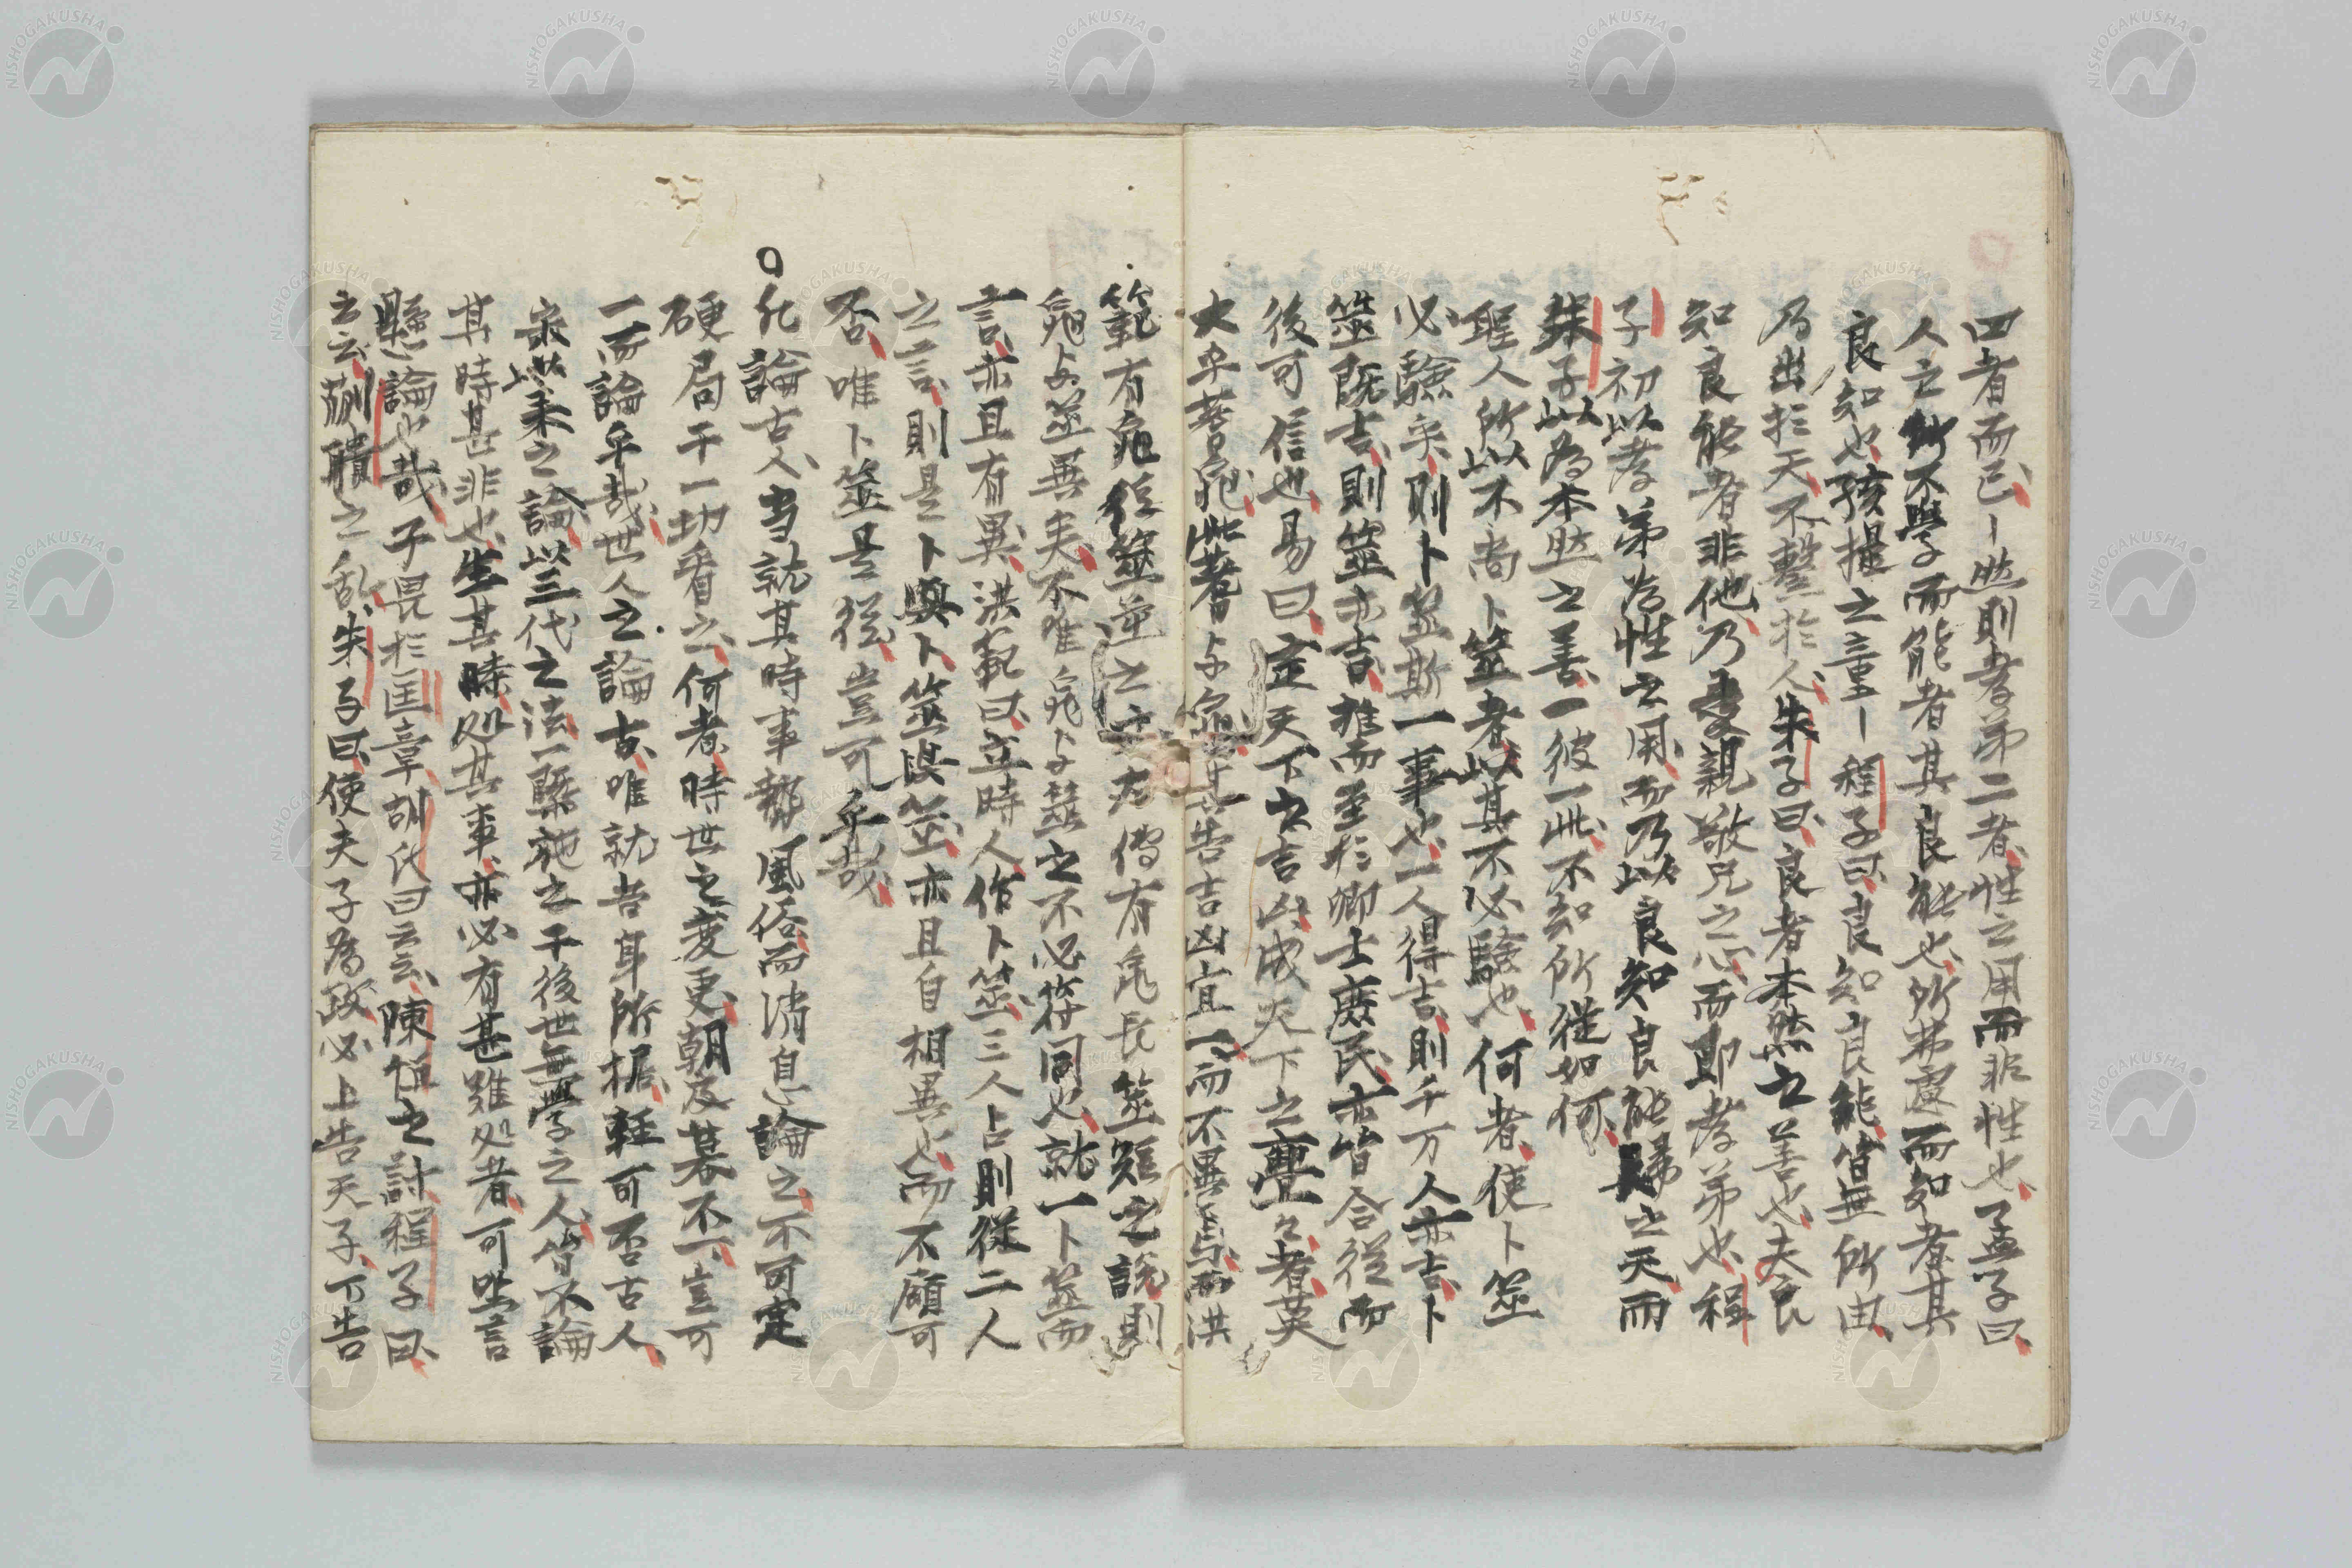 四者而已｜然則孝弟二者、性之用而非性也、孟子曰、
人之所不學而能者其良能也、所弗慮而知者其
良知也、孩提之童｜程子曰、良知良能、皆無所由、
乃出於天、不繫於人、朱子曰、良者本然之善也、夫良
知良能者非他、乃愛親敬兄之心、而即孝弟也、程
子初以孝弟為性之用、而乃以良知良能歸之天、而
朱子以為本然之善、一彼一此、不知所從如何、
聖人所以不尚卜筮者、以其不必驗也、何者、使卜筮
必驗矣、則卜筮斯一事也、一人得吉、則千万人亦吉、卜
筮既吉、則筮亦吉、推而至於卿士庶民、亦皆合從而
後可信也、易曰、定天下之吉凶、成天下之亹々者、莫
大乎蓍龜、此蓍与龜、其告吉凶宜一、而不異焉、而洪
範有龜從筮逆之文、左傳有龜長筮短之說、則
龜与筮異矣、不唯龜与筮之不必符同也、就一卜筮而
言、亦且有異、洪範曰、立時人作卜筮、三人占則從二人
之言、則是卜與卜、筮與筮、亦且自相異也、而不顧可
否、唯卜筮是從、豈可乎哉、
凡論古人、当就其時事勢風俗而消息論之、不可定
硬局于一切看之、何者、時世之変更、朝及暮不一、豈可
一而論乎哉、世人之論古、唯就吾耳所据、輕可否古人、
宋以来之論、以三代之法、一槩施之于後世無學之人、皆不論
其時甚非也、生其時、処其事、亦必有甚難処者、可坐言
懸論也哉、子畏於匡章、胡氏曰云云、陳恒之討、程子曰、
云云、蒯聵之乱、朱子曰、使夫子為政、必上告天子、下告